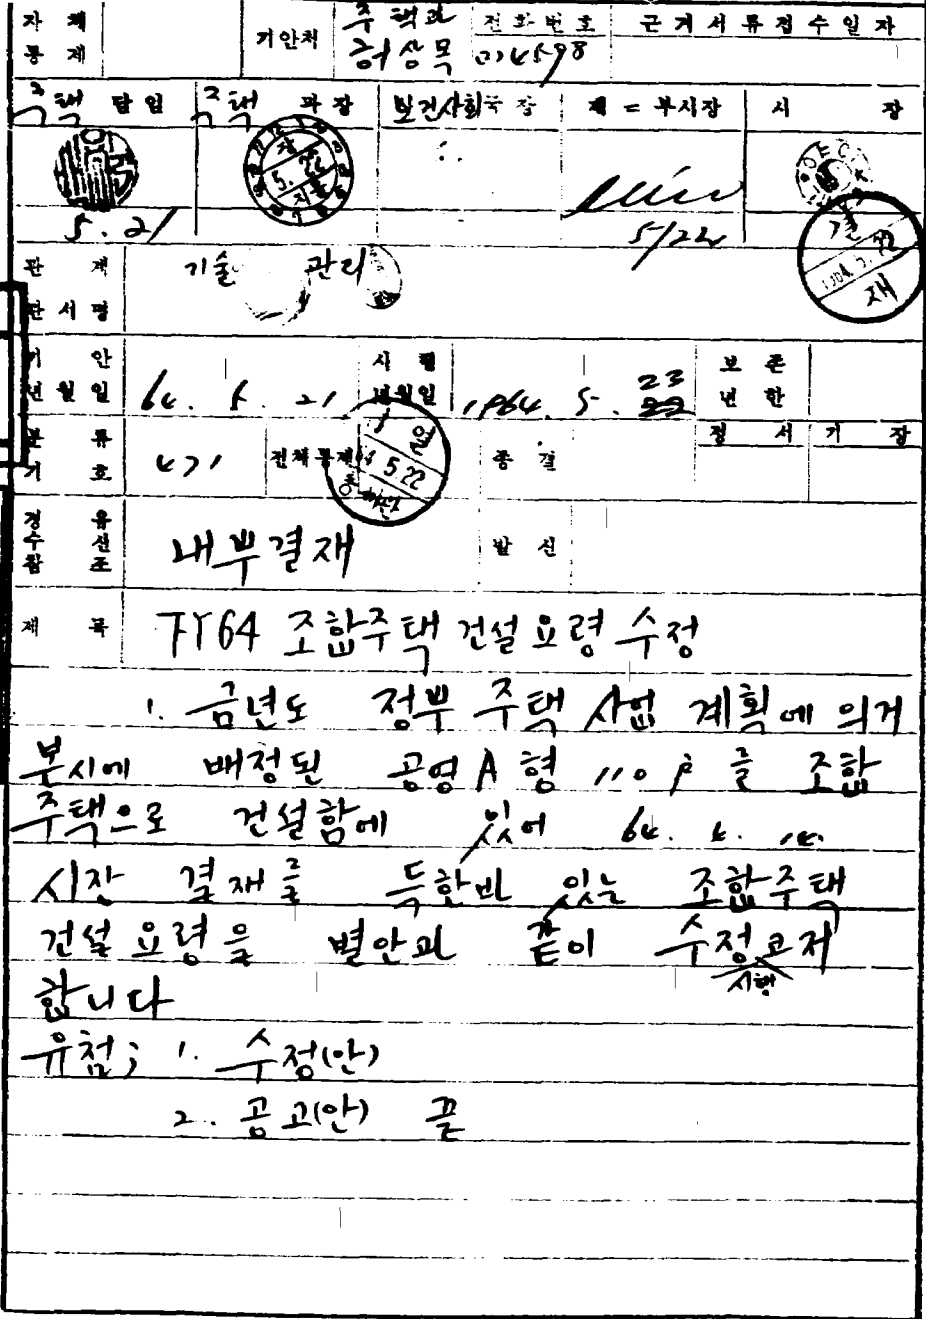 자체 통제 기안처 주택과 허상목 전화번호 근거서류접수일자
주택 담임 주택 과장 보건사회국장 제二부시장 시 장
5. 21 5/22
결재
관계관서명 기술 관리
기안년월일 64. 5. 21 시행년월일 1964. 5. 23 보존년한
분류기호 471 전체통제 종결 정서 기장
5.22
경유수신참조 내부결재 발신
제목 FY64 조합주택 건설요령 수정
1. 금년도 정부 주택 사업 계획에 의거
본시에 배정된 공영 A형 110 를 조합
주택으로 건설함에 있어 64. 4. 14.
시장 결재를 득한바 있는 조합주택
건설요령을 별안과 같이 수정코저
시행
합니다
유첨; 1. 수정(안)
2. 공고(안) 끝